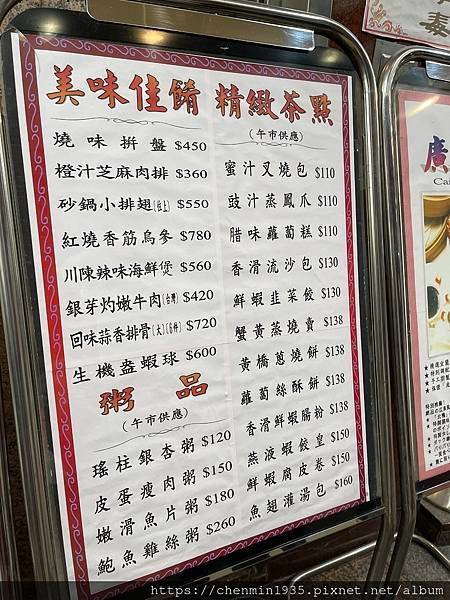 美味佳餚
燒味拼盤 $450
橙汁芝麻肉排 $360
砂鍋小排翅(位上) $550
紅燒香筋烏參 $780
川陳辣味海鮮煲 $560
銀芽灼嫩牛肉(台灣) $420
回味蒜香排骨(大)(6件) $720
生機盎蝦球 $600
粥品
(午市供應)
瑤柱銀杏粥 $120
皮蛋瘦肉粥 $150
嫩滑魚片粥 $180
鮑魚雞絲粥 $260
精緻茶點
(午市供應)
蜜汁叉燒包 $110
豉汁蒸鳳爪 $110
腊味蘿蔔糕 $110
香滑流沙包 $130
鮮蝦韭菜餃 $130
蟹黃蒸燒賣 $138
黃橋蔥燒餅 $138
蘿蔔絲酥餅 $138
香滑鮮蝦腸粉 $138
燕液蝦餃皇 $150
鮮蝦腐皮卷 $150
魚翅灌湯包 $160
廣
https://chenmin1935.pixnet.net/album